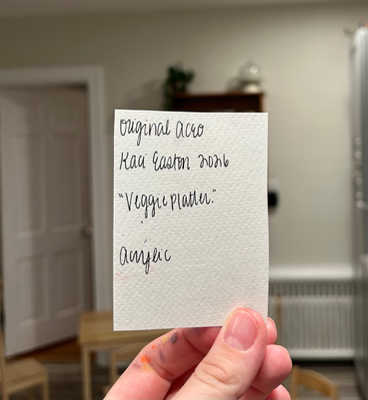 Original ACEO
Kaci Easton 2026
"Veggie Platter."
Acrylic